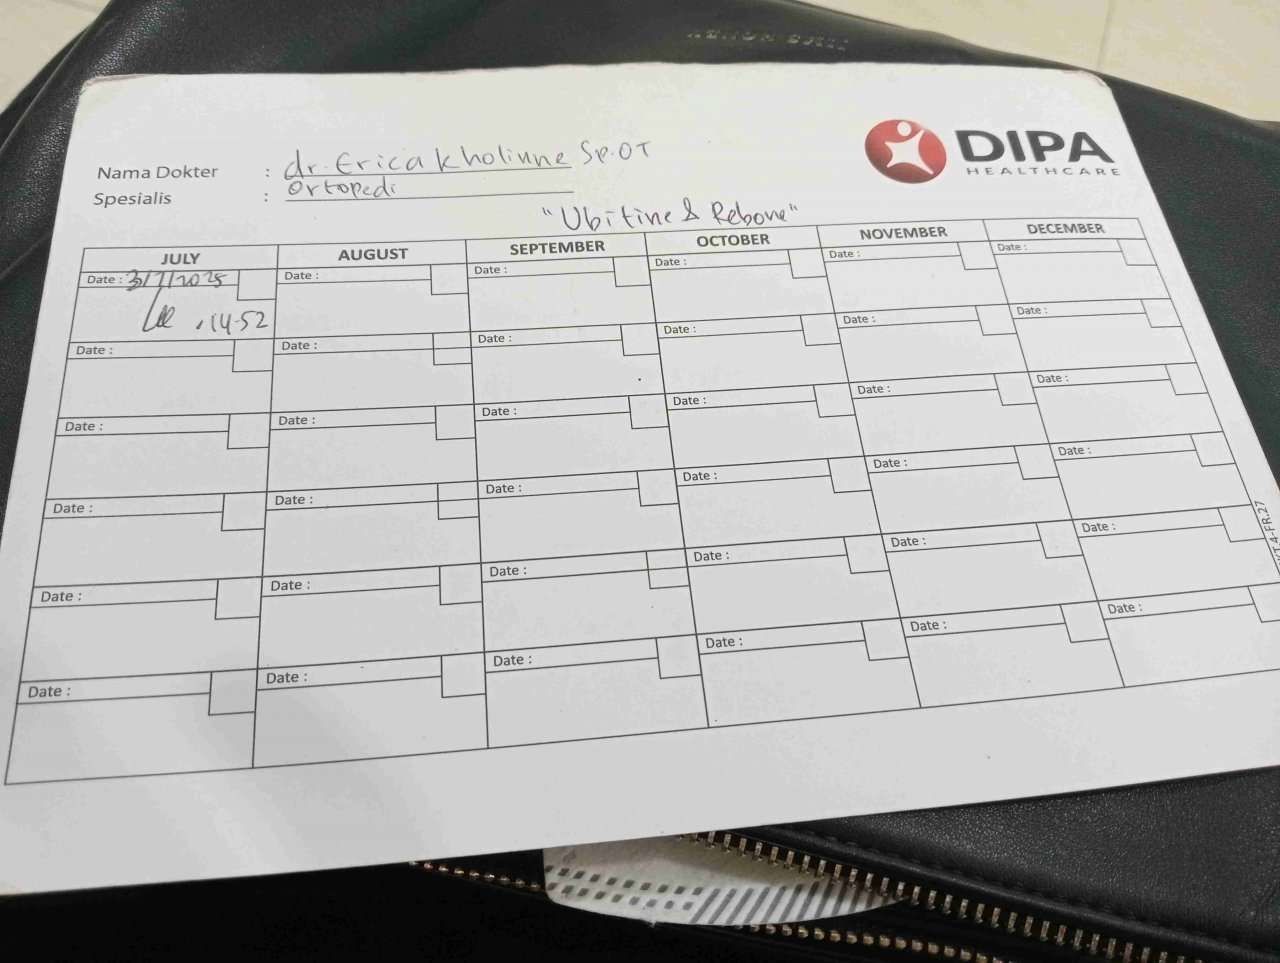 DIPA
HEALTHCARE
Nama Dokter : dr. Erica Kholinne Sp.OT
Spesialis : Ortopedi
"Ubitine & Rebone"
JULY AUGUST SEPTEMBER OCTOBER NOVEMBER DECEMBER
Date : 3/7/2025 Date : Date : Date : Date : Date :
14-52
Date : Date : Date : Date : Date : Date :
Date : Date : Date : Date : Date : Date :
Date : Date : Date : Date : Date : Date :
Date : Date : Date : Date : Date : Date :
Date : Date : Date : Date : Date : Date :